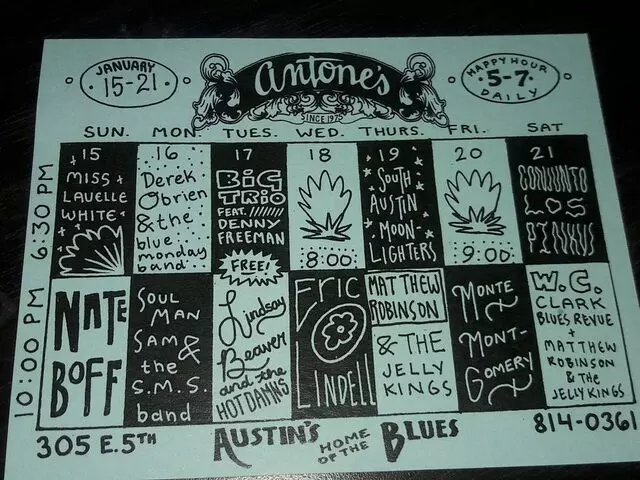 JANUARY
15-21
antone's
SINCE 1975
HAPPY HOUR
5-7
DAILY
SUN. MON. TUES. WED. THURS. FRI. SAT
6:30 PM
15
MISS
LAVELLE
WHITE
16
Derek
Obrien
& the
blue
monday
band
17
BIG
TRIO
FEAT.
DENNY
FREEMAN
18
8:00
19
SOUTH
AUSTIN
MOON-
LIGHTERS
20
9:00
21
CONJUNTO
LOS
PINKYS
10:00 PM
NATE
BOFF
SOUL
MAN
SAM &
the
S.M.S.
band
FREE!
Lindsay
Beaver
and the
HOT DAMNS
Eric
LINDELL
MATTHEW
ROBINSON
& THE
JELLY
KINGS
MONTE
MONT-
GOMERY
W.C.
CLARK
BLUES REVUE
+
MATTHEW
ROBINSON
& the
JELLY KINGS
305 E. 5TH
AUSTIN'S HOME OF THE BLUES
814-0361